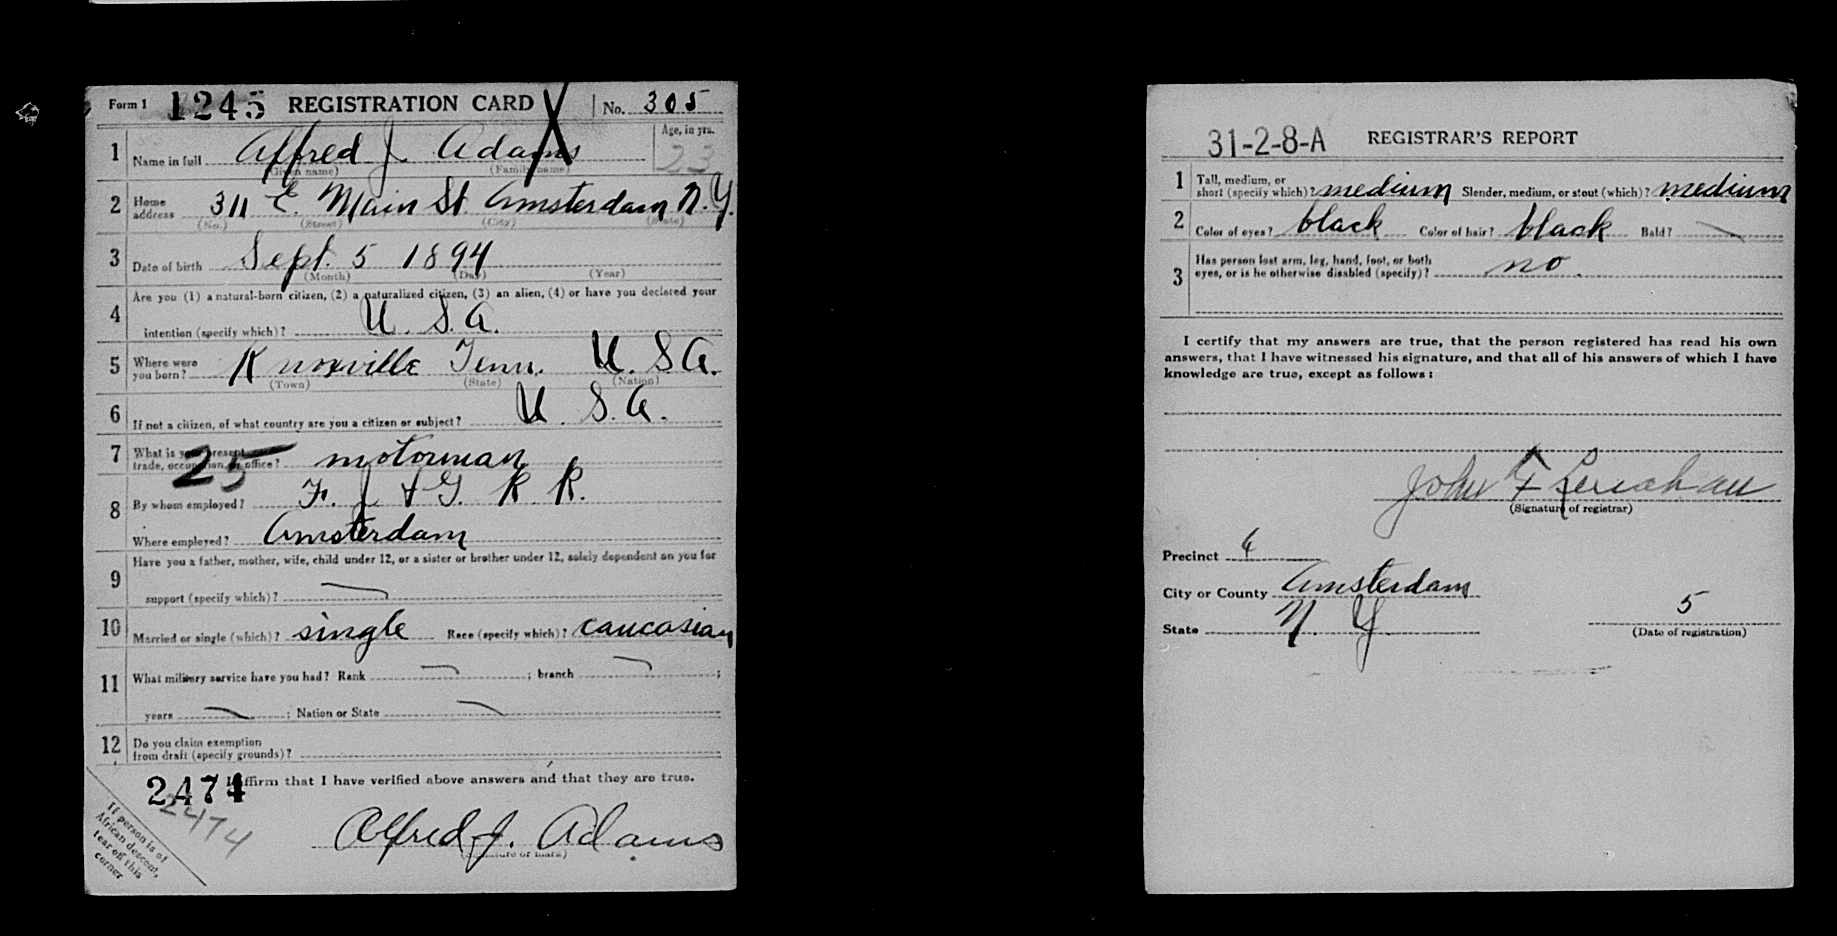 Form 1 1245 REGISTRATION CARD X No. 305
1 Name in full Alfred J Adams Age, in yrs. 23
(Given name) (Family name)
2 Home address 311 E. Main St. Amsterdam N.Y.
(No.) (Street) (City) (State)
3 Date of birth Sept. 5 1894
(Month) (Day) (Year)
4 Are you (1) a natural-born citizen, (2) a naturalized citizen, (3) an alien, (4) or have you declared your
intention (specify which)? U. S. A.
5 Where were you born? Knoxville Tenn. U. S. A.
(Town) (State) (Nation)
6 If not a citizen, of what country are you a citizen or subject? U. S. A.
7 What is your present trade, occupation, or office? motorman
25
8 By whom employed? F. J. & G. R. R.
Where employed? Amsterdam
9 Have you a father, mother, wife, child under 12, or a sister or brother under 12, solely dependent on you for
support (specify which)?
10 Married or single (which)? single Race (specify which)? caucasian
11 What military service have you had? Rank ; branch ;
years ; Nation or State
12 Do you claim exemption
from draft (specify grounds)?
2474 I affirm that I have verified above answers and that they are true.
2474
Alfred J. Adams
(Signature or mark)
If person is of
African descent,
tear off this
corner
31-2-8-A REGISTRAR'S REPORT
1 Tall, medium, or short (specify which)? medium Slender, medium, or stout (which)? medium
2 Color of eyes? black Color of hair? black Bald?
3 Has person lost arm, leg, hand, foot, or both
eyes, or is he otherwise disabled (specify)? no.
I certify that my answers are true, that the person registered has read his own
answers, that I have witnessed his signature, and that all of his answers of which I have
knowledge are true, except as follows:
John F
(Signature of registrar)
Precinct 6
City or County Amsterdam
State N. Y. 5
(Date of registration)